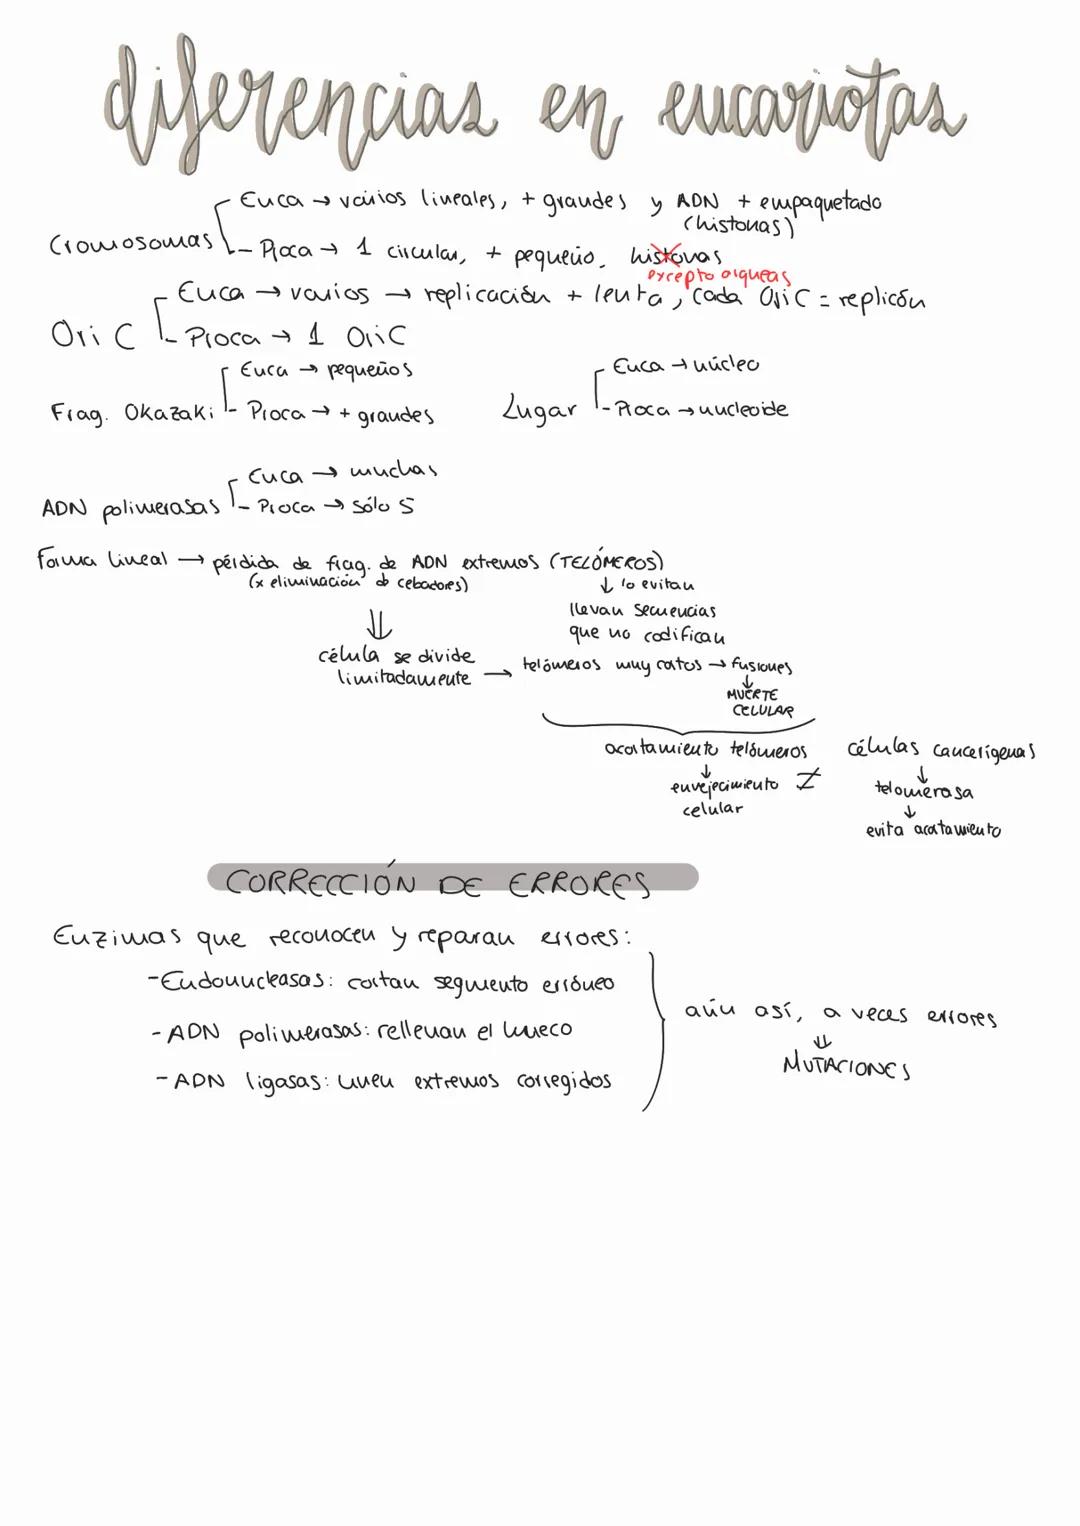 diferencias en eucariotas
Cromosomas
Euca → varios lineales, + grandes y ADN + empaquetado
(histonas)
Proca → 1 circular, + pequeño, histonas
excepto arqueas
Ori C
Euca → varios → replicación + lenta, cada Ori C = replicón
Proca → 1 Ori C
Frag. Okazaki
Euca → pequeños
Proca → + grandes
Lugar
Euca → núcleo
Proca → nucleoide
ADN polimerasas
Euca → muchas
Proca → sólo 5
Forma lineal → pérdida de frag. de ADN extremos (TELÓMEROS)
(x eliminación de cebadores)
↓ lo evitan
llevan secuencias
que no codifican
⇓
célula se divide
limitadamente → telómeros muy cortos → fusiones
↓
MUERTE
CELULAR
acortamiento telómeros
↓
envejecimiento
celular
≠
células cancerígenas
↓
telomerasa
↓
evita acortamiento
CORRECCIÓN DE ERRORES
Enzimas que reconocen y reparan errores:
- Endonucleasas: cortan segmento erróneo
- ADN polimerasas: rellenan el hueco
- ADN ligasas: unen extremos corregidos
aún así, a veces errores
⇓
MUTACIONES